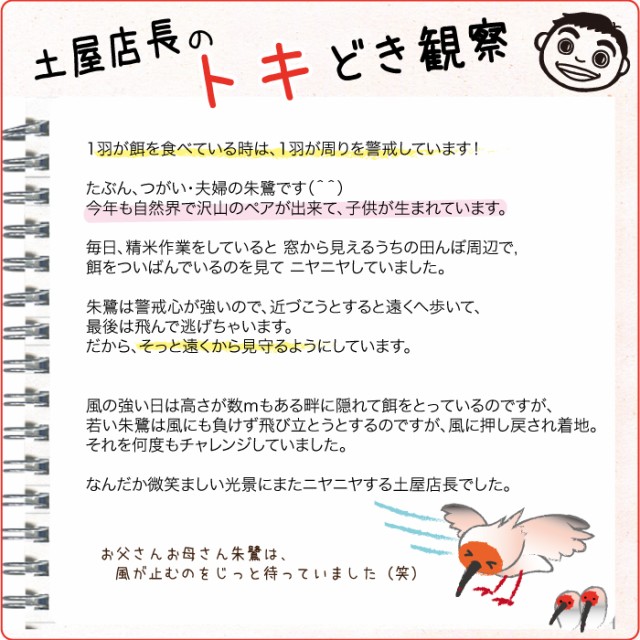 土屋店長のトキどき観察
1羽が餌を食べている時は、1羽が周りを警戒しています!
たぶん、つがい・夫婦の朱鷺です(^^)
今年も自然界で沢山のペアが出来て、子供が生まれています。
毎日、精米作業をしていると 窓から見えるうちの田んぼ周辺で,
餌をついばんでいるのを見て ニヤニヤしていました。
朱鷺は警戒心が強いので、近づこうとすると遠くへ歩いて、
最後は飛んで逃げちゃいます。
だから、そっと遠くから見守るようにしています。
風の強い日は高さが数mもある畔に隠れて餌をとっているのですが、
若い朱鷺は風にも負けず飛び立とうとするのですが、風に押し戻され着地。
それを何度もチャレンジしていました。
なんだか微笑ましい光景にまたニヤニヤする土屋店長でした。
お父さんお母さん朱鷺は、
風が止むのをじっと待っていました(笑)